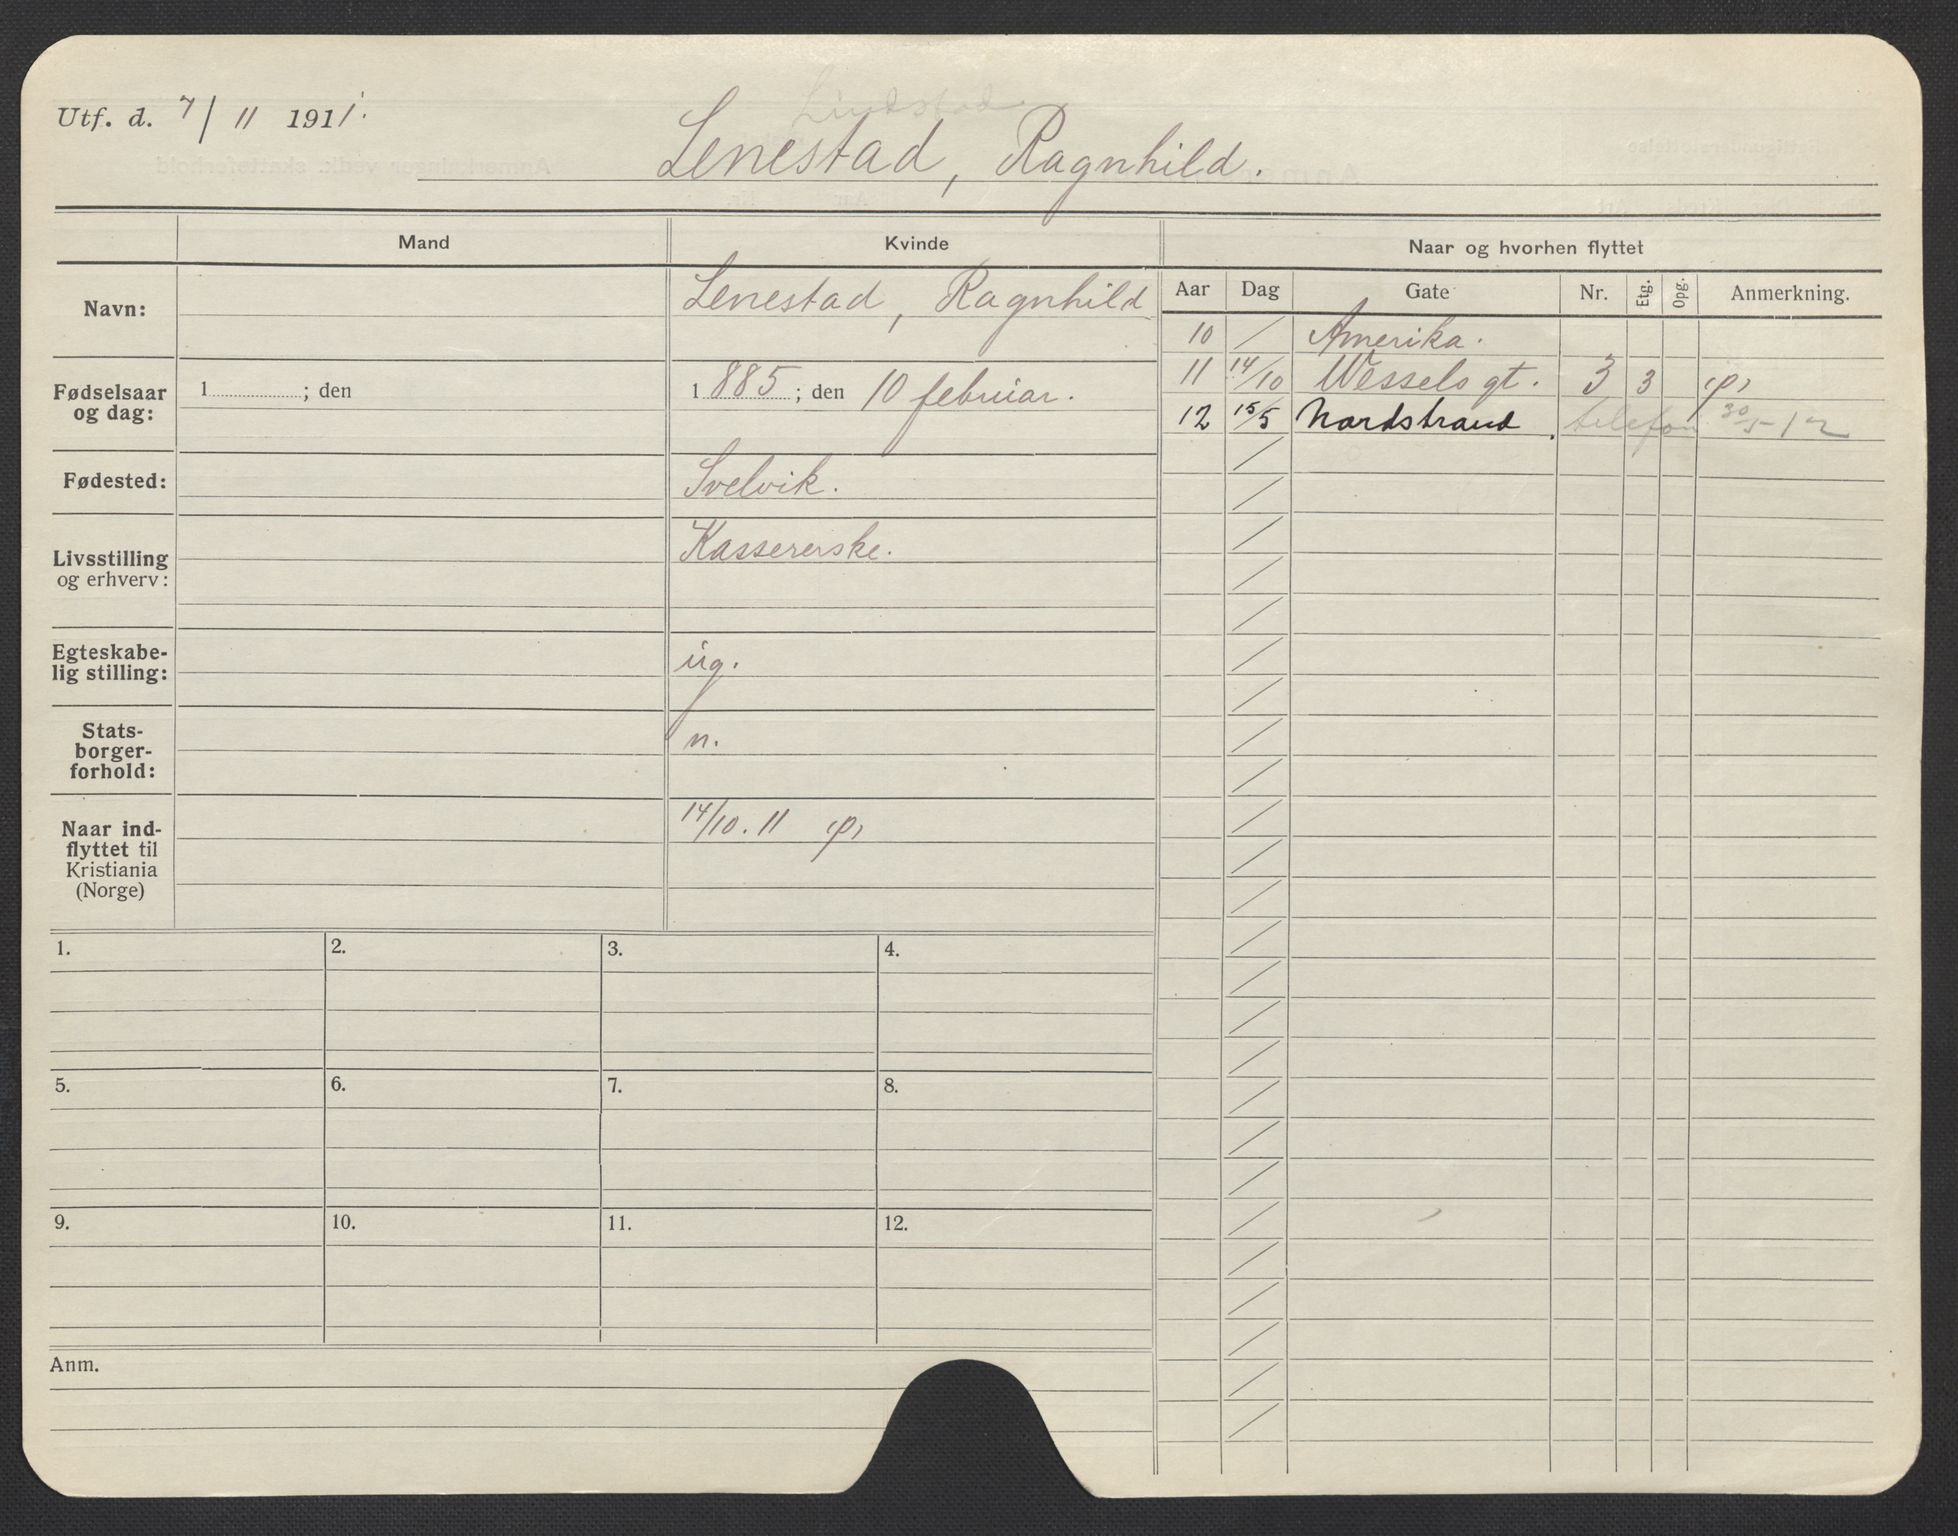 Utf. d. 7/11 1911.
Lindstad
Lenestad, Ragnhild.
Mand
Kvinde
Naar og hvorhen flyttet
Navn:
Lenestad, Ragnhild
Fødselsaar og dag:
1 ; den
1885; den 10 februar.
Fødested:
Svelvik.
Livsstilling og erhverv:
Kassererske.
Egteskabe-
lig stilling:
ug.
Stats-
borger-
forhold:
n.
Naar ind-
flyttet til
Kristiania
(Norge)
14/10. 11 (p)
Aar Dag Gate Nr. Etg. Opg. Anmerkning.
10 / Amerika.
11 14/10 Wessels gt. 3 3 (p)
12 15/5 Nordstrand telefon 30/5-12
1. 2. 3. 4.
5. 6. 7. 8.
9. 10. 11. 12.
Anm.